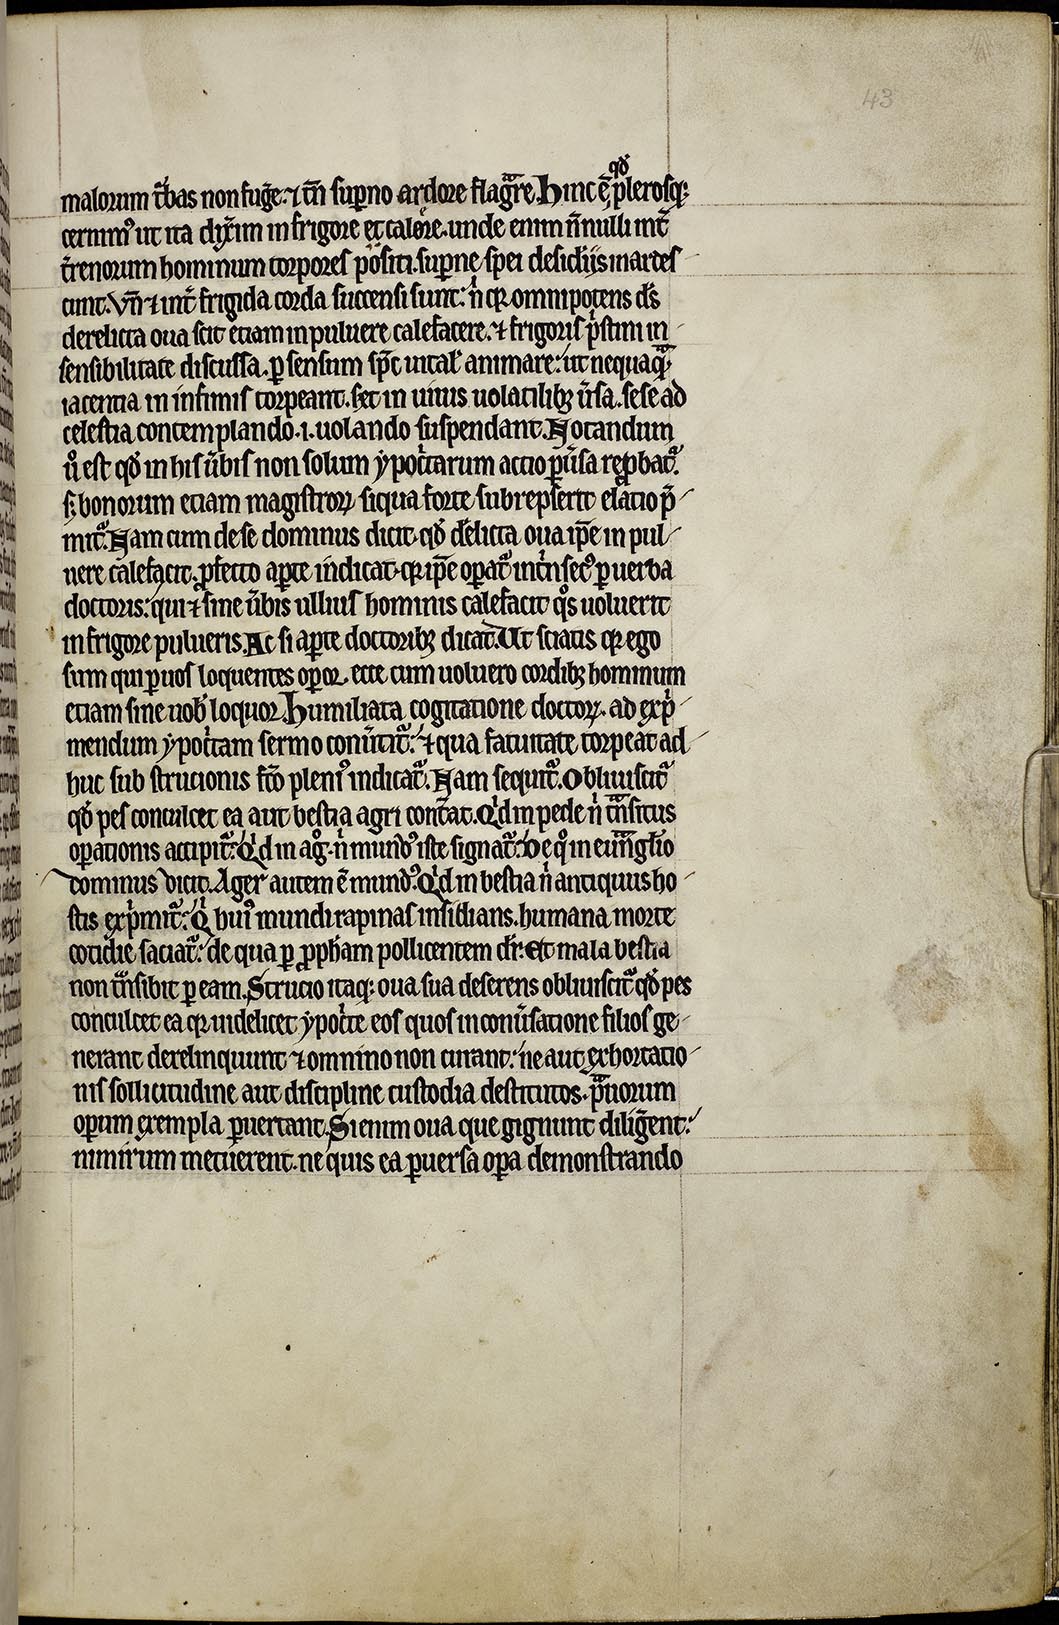 43
qđ
malorum t̃bas non fug̃e. ⁊ tñ suꝑno ardore flagᷓre. Hinc ẽ, plerosq;
cernimꝰ ut ita dix̃im in frigore et calore. unde enim ñnulli int̃
t̃renorum hominum torpores positi. suꝑne spei desidijs inardes
cunt. Vñ ⁊ int̃ frigida corda succensi sunt: ñ qꝛ omnipotens dꝰs
derelicta oua scit etiam in puluere calefacere. ⁊ frigoris pͥstini in
sensibilitate discussa. ꝑ sensum spc̃ uital̾ animare: ut nequaqᷓ
iacentia in infimis torpeant. set in uiuis uolatilibꝫ ũsa. sese ad
celestia contemplando .i. uolando suspendant. Notandum
ũ est qđ in his ũbis non solum ypocͥtarum actio ꝑũsa reꝓbatᷓ.
s; bonorum etiam magistroꝝ siqua forte subrepserit elatio p̃
mitᷓ. Nam cum de se dominus dicit. qđ d̾elicta oua ip̃e in pul
uere calefacit. ꝓfecto aꝑte indicat. qꝛ ip̃e oꝑatᷓ intͥnsecꝰ ꝑ uerba
doctoris: qui ⁊ sine ũbis ullius hominis calefacit qͦs uoluerit
in frigore pulueris. Ac si aꝑte doctoribꝫ dicat̃. Ut sciatis qꝛ ego
sum qui ꝑ uos loquentes oꝑor. ecce cum uoluero cordibꝫ hominum
etiam sine uob̾ loquor. Humiliata cogitatione doctoꝝ. ad expͥ
mendum ypocͥtam sermo conũtitᷓ: ⁊ qua fatuitate torpeat ad
huc sub strucionis fc̃o pleniꝰ indicatᷓ. Nam sequitᷓ. Obliuiscitᷓ
qđ pes conculcet ea aut bestia agri cont̃at. Qͥd in pede ñ tᷓnsitus
oꝑationis accipitᷓ: Qͥd in agͦ. ñ mundꝰ iste signatᷓ: De qͦ in euᷓngl̾io
dominus dicit. Ager autem ẽ mundꝰ. Qͥd in bestia ñ antiquus ho
stis expͥmitᷓ: Qͥ huiꝰ mundi rapinas insidians. humana morte
cotidie saciatᷓ: de qua ꝑ ꝓpham pollicentem dr̃: Et mala bestia
non tᷓnsibit ꝑ eam. Strucio itaq; oua sua deserens obliuiscitᷓ qđ pes
conculcet ea qꝛ uidelicet ypocͥte eos quos in conũsatione filios ge
nerant derelinquunt ⁊ omnino non curant: ne aut exhortatio
nis sollicitudine aut discipline custodia destitutos. pᷓuorum
oꝑum exempla ꝑuertant. Si enim oua que gignunt dilig̃ent:
nimirum metuerent. ne quis ea ꝑuersa oꝑa demonstrando